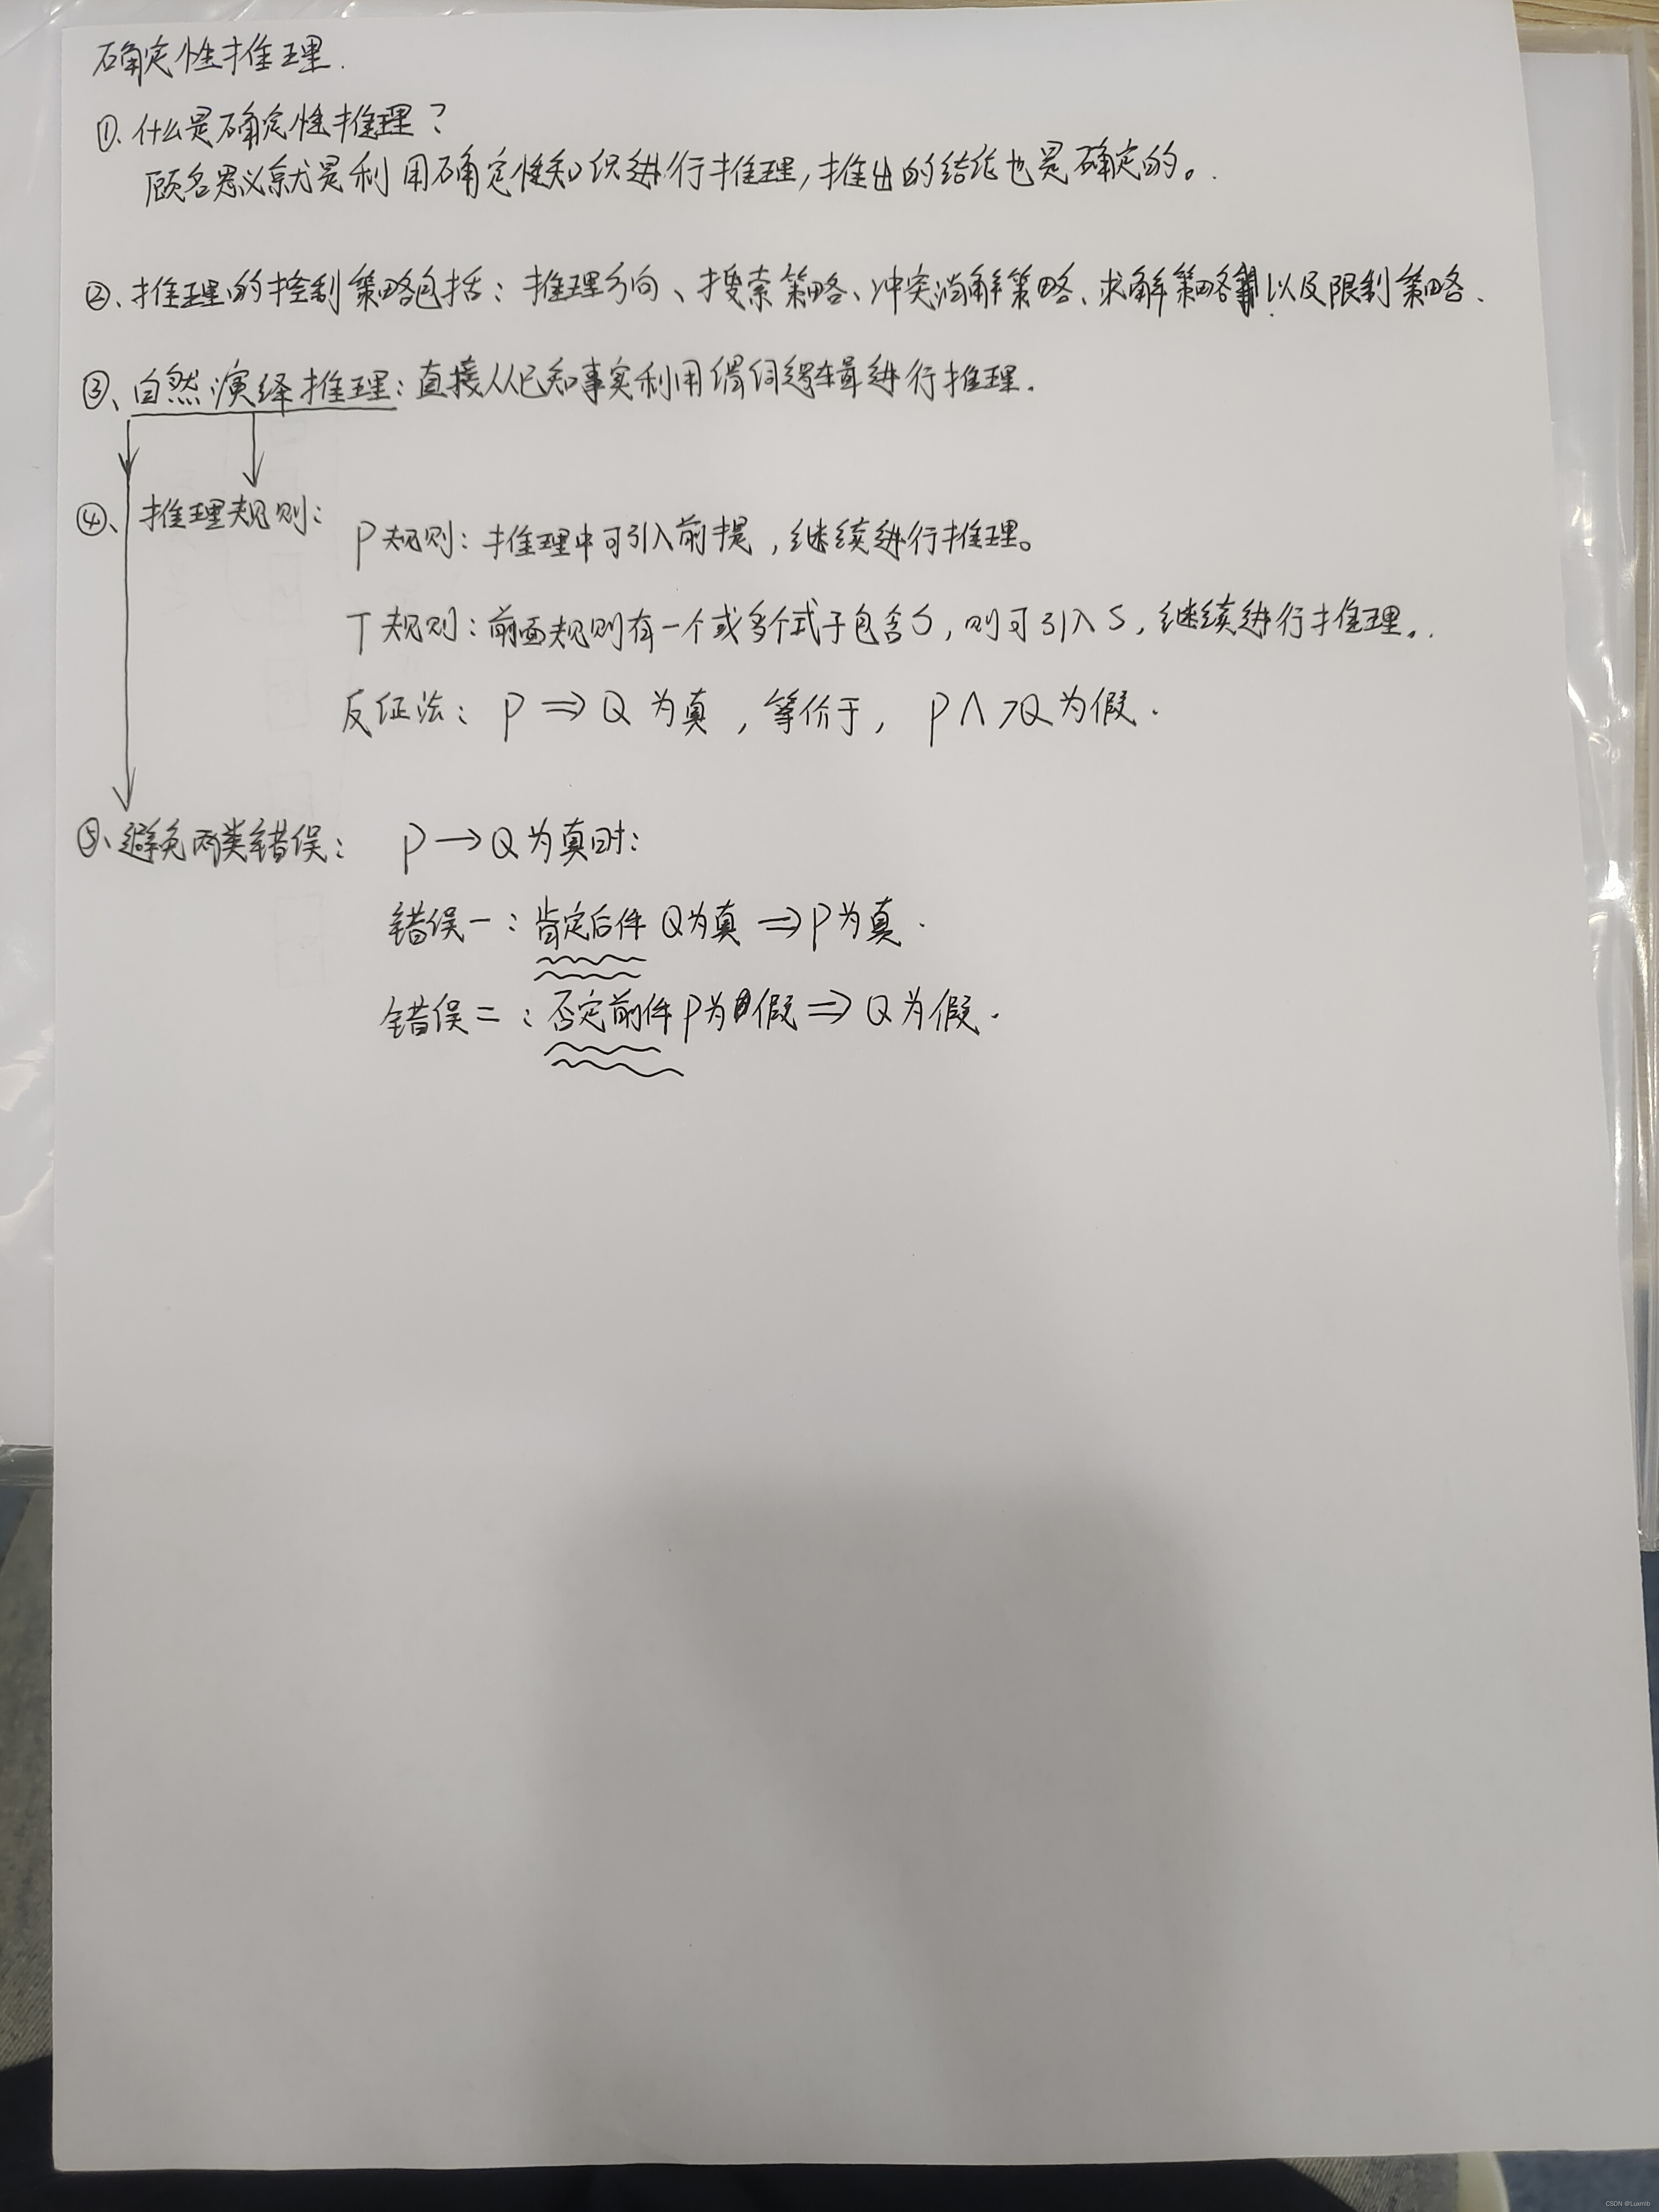 确定性推理.
①.什么是确定性推理?
顾名思义就是利用确定性知识进行推理,推出的结论也是确定的。
②、推理的控制策略包括:推理方向、搜索策略、冲突消解策略、求解策略以及限制策略.
③、自然演绎推理:直接从已知事实利用谓词逻辑进行推理.
④、推理规则:
P规则:推理中可引入前提,继续进行推理。
T规则:前面规则有一个或多个式子包含S,则可引入S,继续进行推理。
反证法: P ⇒ Q 为真,等价于, P∧¬Q为假.
⑤、避免两类错误: P→Q为真时:
错误一:肯定后件 Q为真 ⇒P为真.
错误二:否定前件P为假⇒Q为假.
CSDN @Luxmlb